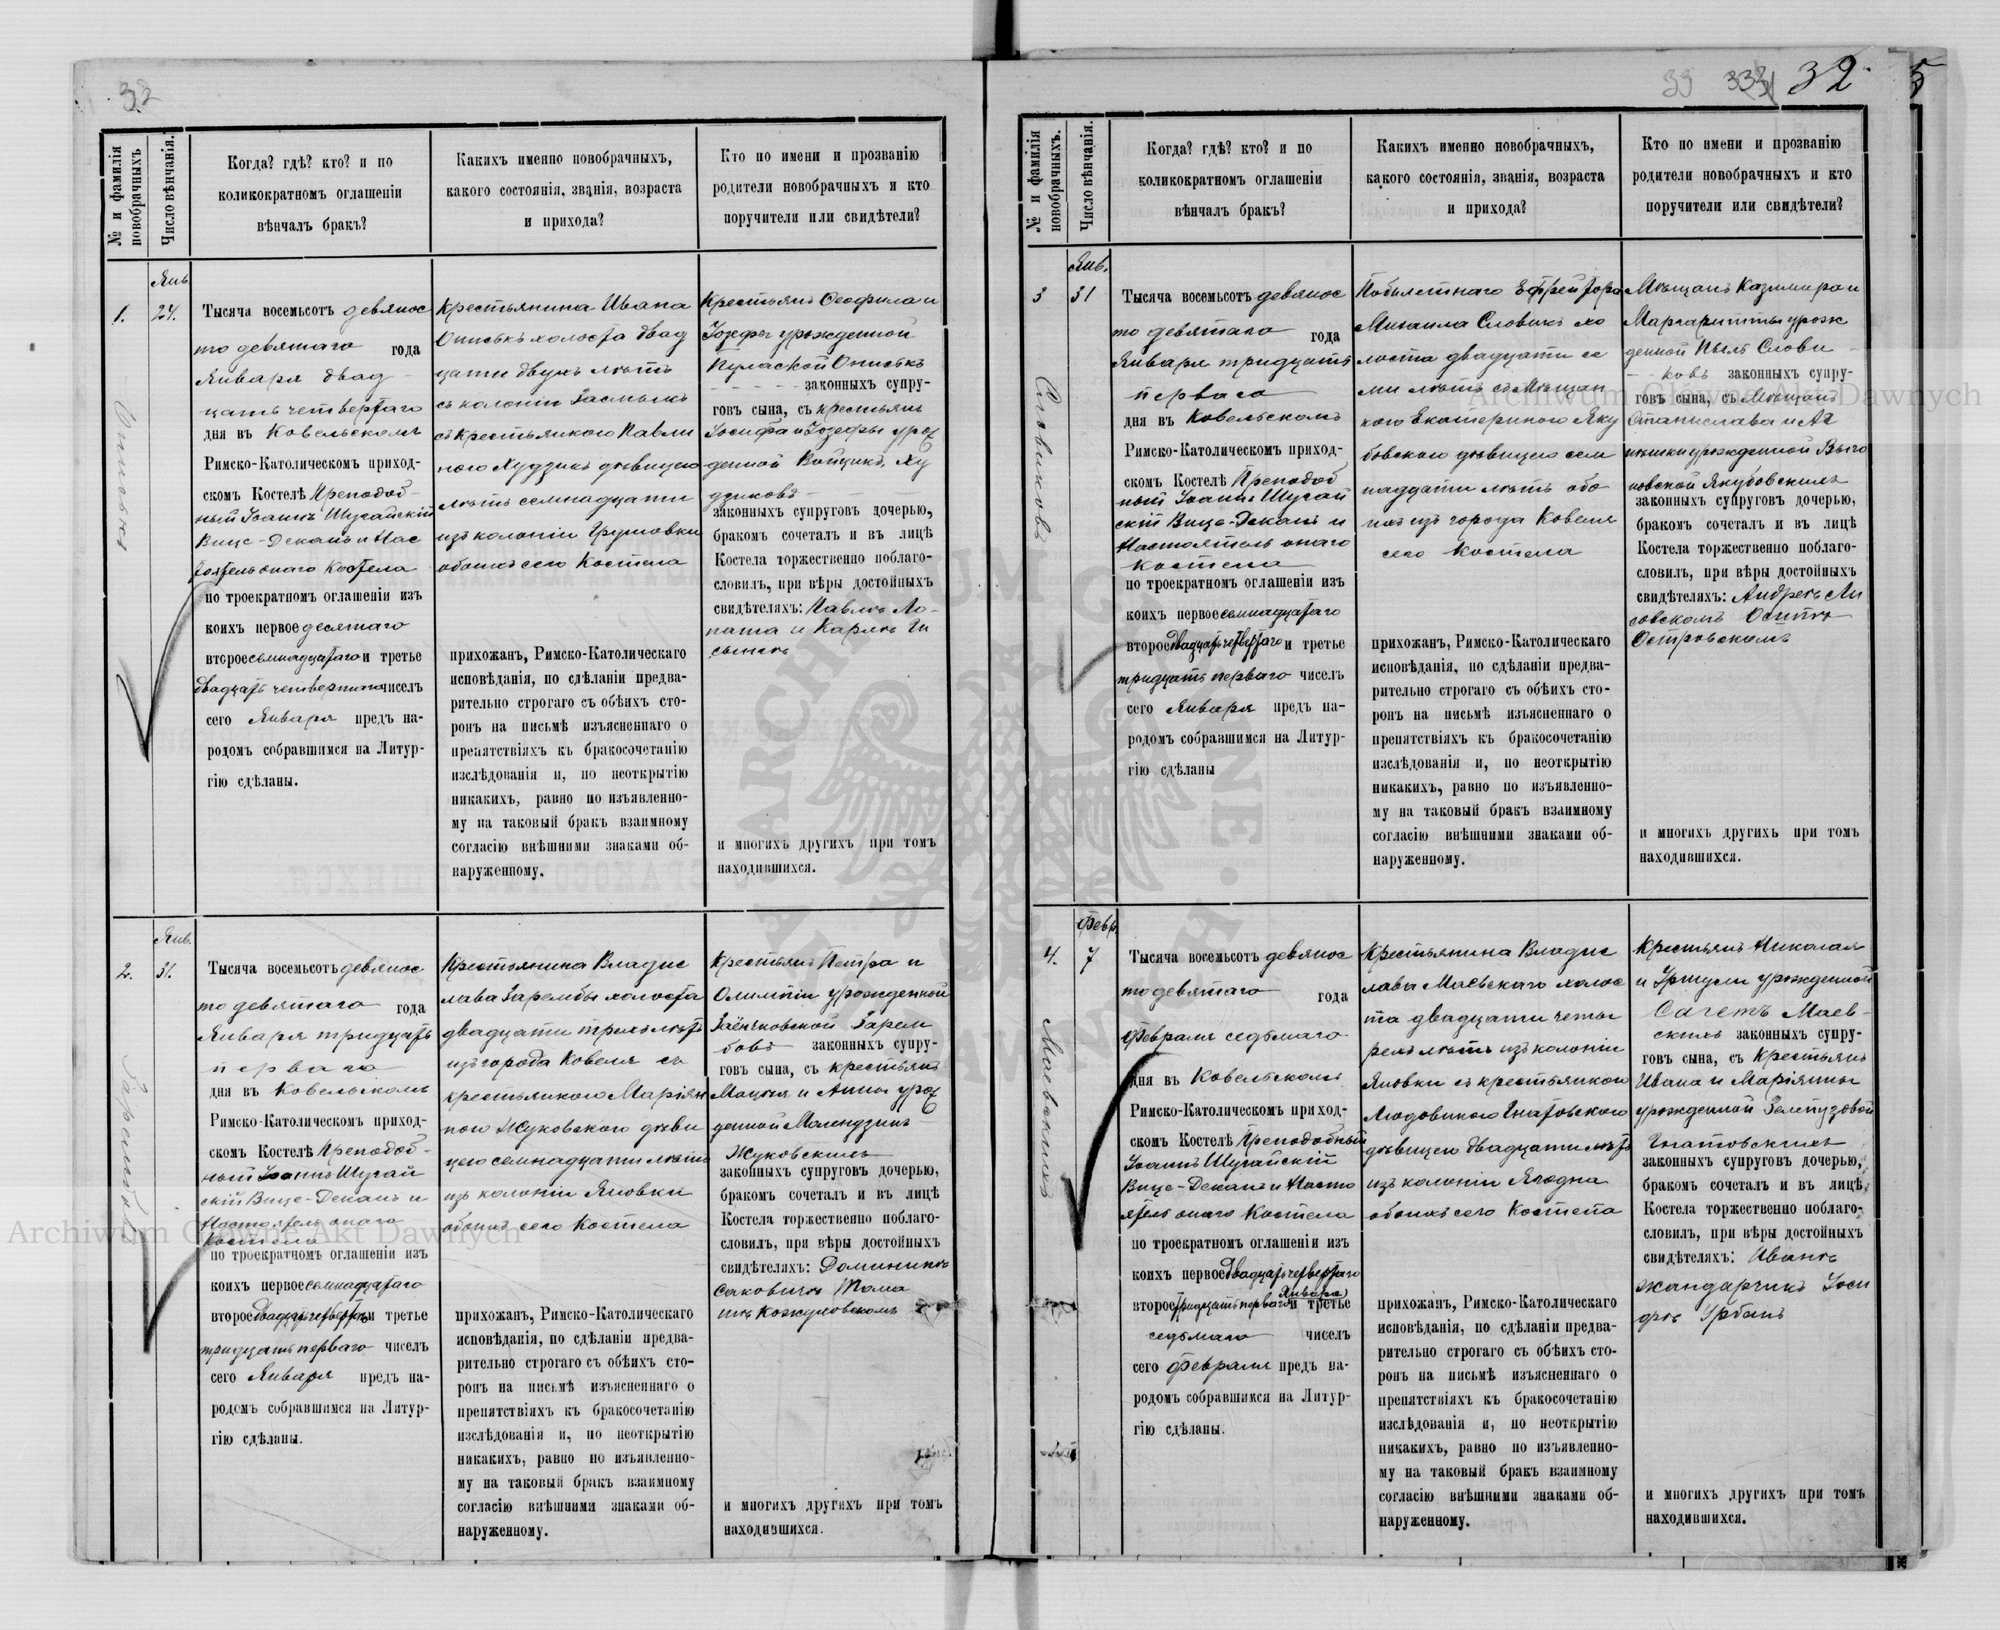 32
№ и фамилія новобрачныхъ
Число вѣнчанія.
Когда? гдѣ? кто? и по
коликократномъ оглашеніи
вѣнчалъ бракъ?
Какихъ именно новобрачныхъ,
какого состоянія, званія, возраста
и прихода?
Кто по имени и прозванію
родители новобрачныхъ и кто
поручители или свидѣтели?
1.
Янв.
24.
Тысяча восемьсотъ девянос
то девятаго года
Января двад
цать четвертаго
дня въ Ковельскомъ
Римско-Католическомъ приход-
скомъ Костелѣ Преподоб-
ный Іоаннъ Шугайскій
Вице-Деканъ и Нас
тоятель онаго Костела
по троекратномъ оглашеніи изъ
коихъ первое десятаго
второе семнадцатаго и третье
двадцать четвертаго чиселъ
сего Января предъ на-
родомъ собравшимся на Литур-
гію сдѣланы.
Крестьянина Ивана
холоста двад
цати двухъ лѣтъ
съ колоніи
съ крестьянкою Павли
ною дѣвицею
лѣтъ семнадцати
изъ колоніи
обоихъ сего Костела
прихожанъ, Римско-Католическаго
исповѣданія, по сдѣланіи предва-
рительно строгаго съ обѣихъ сто-
ронъ на письмѣ изъясненнаго о
препятствіяхъ къ бракосочетанію
изслѣдованія и, по неоткрытію
никакихъ, равно по изъявленно-
му на таковый бракъ взаимному
согласію внѣшними знаками об-
наруженному.
Крестьянъ Ѳеофила и
Іозефы урожденной
законныхъ супру-
говъ сына, съ крестьянъ
Іосифа и Іозефы урож
денной Войцикъ, Ху
дзиковъ
законныхъ супруговъ дочерью,
бракомъ сочеталъ и въ лицѣ
Костела торжественно поблаго-
словилъ, при вѣры достойныхъ
свидѣтеляхъ: Павлѣ Ло-
пата и Карлѣ
и многихъ другихъ при томъ
находившихся.
2.
Янв.
31.
Тысяча восемьсотъ девянос
то девятаго года
Января тридцать
перваго
дня въ Ковельскомъ
Римско-Католическомъ приход-
скомъ Костелѣ Преподоб-
ный Іоаннъ Шугай
скій Вице-Деканъ и
Настоятель онаго
Костела
по троекратномъ оглашеніи изъ
коихъ первое семнадцатаго
второе и третье
тридцать перваго чиселъ
сего Января предъ на-
родомъ собравшимся на Литур-
гію сдѣланы.
Крестьянина Владис
лава Зарембы холоста
двадцати трехъ лѣтъ
изъ города Ковеля съ
крестьянкою Маріян
ною Жуковскою дѣви
цею семнадцати лѣтъ
изъ колоніи Яновки
обоихъ сего Костела
прихожанъ, Римско-Католическаго
исповѣданія, по сдѣланіи предва-
рительно строгаго съ обѣихъ сто-
ронъ на письмѣ изъясненнаго о
препятствіяхъ къ бракосочетанію
изслѣдованія и, по неоткрытію
никакихъ, равно по изъявленно-
му на таковый бракъ взаимному
согласію внѣшними знаками об-
наруженному.
Крестьянъ Петра и
Олимпіи урожденной
Зарем
бовъ законныхъ супру-
говъ сына, съ крестьянъ
и Анны урож
денной
Жуковскихъ
законныхъ супруговъ дочерью,
бракомъ сочеталъ и въ лицѣ
Костела торжественно поблаго-
словилъ, при вѣры достойныхъ
свидѣтеляхъ: Доминикѣ
Саковичѣ Тома
шѣ
и многихъ другихъ при томъ
находившихся.
33 32 5
№ и фамилія новобрачныхъ.
Число вѣнчанія.
Когда? гдѣ? кто? и по
коликократномъ оглашеніи
вѣнчалъ бракъ?
Какихъ именно новобрачныхъ,
какого состоянія, званія, возраста
и прихода?
Кто по имени и прозванію
родители новобрачныхъ и кто
поручители или свидѣтели?
3
Янв.
31
Тысяча восемьсотъ девянос
то девятаго года
Января тридцать
перваго
дня въ Ковельскомъ
Римско-Католическомъ приход-
скомъ Костелѣ Преподоб
ный Іоаннъ Шугай
скій Вице-Деканъ и
Настоятель онаго
Костела
по троекратномъ оглашеніи изъ
коихъ первое семнадцатаго
второе двадцать четвертаго и третье
тридцать перваго чиселъ
сего Января предъ на-
родомъ собравшимся на Литур-
гію сдѣланы
Ефрейтора
Михаила Словикъ хо
лоста двадцати се
ми лѣтъ съ мѣщан
кою Екатериною Яку
бовскою дѣвицею сем
надцати лѣтъ обо
ихъ изъ города Ковеля
сего Костела
прихожанъ, Римско-Католическаго
исповѣданія, по сдѣланіи предва-
рительно строгаго съ обѣихъ сто-
ронъ на письмѣ изъясненнаго о
препятствіяхъ къ бракосочетанію
изслѣдованія и, по неоткрытію
никакихъ, равно по изъявленно-
му на таковый бракъ взаимному
согласію внѣшними знаками об-
наруженному.
Мѣщанъ Казимира и
Маргариты урож
денной Слови
ковъ законныхъ супру-
говъ сына, съ Мѣщанъ
Станислава и Аг
нѣшки урожденной
Якубовскихъ
законныхъ супруговъ дочерью,
бракомъ сочеталъ и въ лицѣ
Костела торжественно поблаго-
словилъ, при вѣры достойныхъ
свидѣтеляхъ: Андреѣ Ли
совскомъ Осипѣ
Островскомъ
и многихъ другихъ при томъ
находившихся.
4.
Февр.
7
Маевскихъ
Тысяча восемьсотъ девянос
то девятаго года
Февраля седьмаго
дня въ Ковельскомъ
Римско-Католическомъ приход-
скомъ Костелѣ Преподобный
Іоаннъ Шугайскій
Вице-Деканъ и Насто
ятель онаго Костела
по троекратномъ оглашеніи изъ
коихъ первое двадцать четвертаго
второе тридцать перваго Января и третье
седьмаго чиселъ
сего Февраля предъ на-
родомъ собравшимся на Литур-
гію сдѣланы.
Крестьянина Владис
лава Маевскаго холос
та двадцати четы
рехъ лѣтъ изъ колоніи
Яновки съ крестьянкою
Людовикою Гнатовскою
дѣвицею двадцати лѣтъ
изъ колоніи Ягодна
обоихъ сего Костела
прихожанъ, Римско-Католическаго
исповѣданія, по сдѣланіи предва-
рительно строгаго съ обѣихъ сто-
ронъ на письмѣ изъясненнаго о
препятствіяхъ къ бракосочетанію
изслѣдованія и, по неоткрытію
никакихъ, равно по изъявленно-
му на таковый бракъ взаимному
согласію внѣшними знаками об-
наруженному.
Крестьянъ Николая
и Уршули урожденной
Маев-
скихъ законныхъ супру-
говъ сына, съ Крестьянъ
Ивана и Маріянны
урожденной
Гнатовскихъ
законныхъ супруговъ дочерью,
бракомъ сочеталъ и въ лицѣ
Костела торжественно поблаго-
словилъ, при вѣры достойныхъ
свидѣтеляхъ: Иванѣ
Жандарчикъ Іоси
фѣ Урбанъ
и многихъ другихъ при томъ
находившихся.
Archiwum Główne Akt Dawnych
Archiwum Główne Akt Dawnych